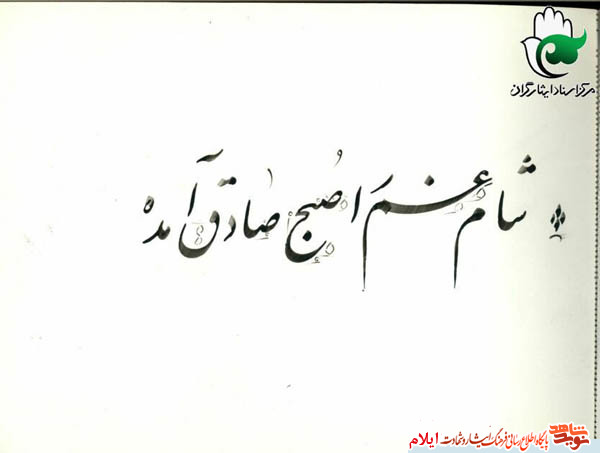 مرکز اسناد ایثارگران
شام غم را صبح صادق آمده
نوید شاهد پایگاه اطلاع رسانی فرهنگ ایثار و شهادت ایلام